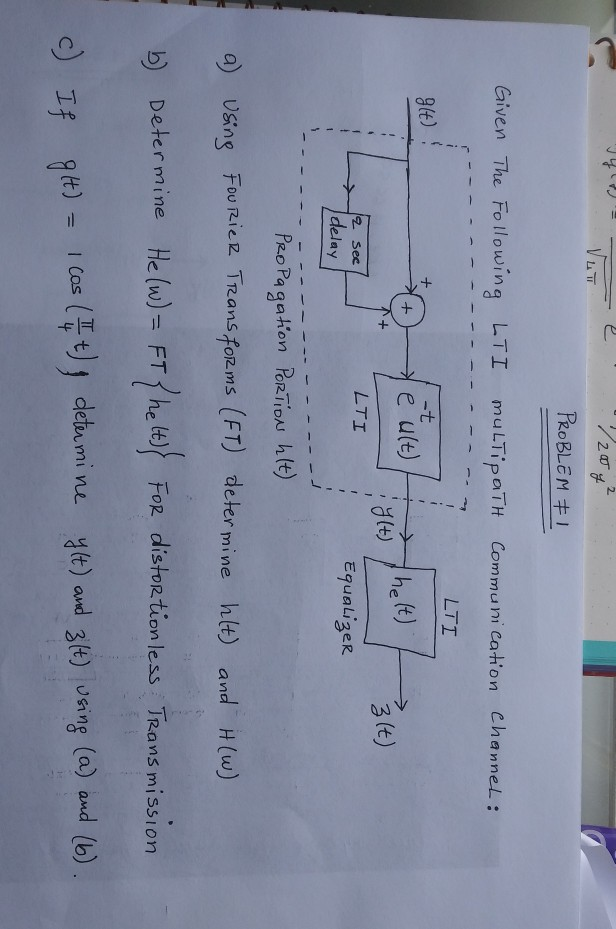 PROBLEM # 1
Given The Following LTI multipath communication channel:
g(t)
+
+
+
2 sec
delay
e^-t u(t)
LTI
y(t)
LTI
he(t)
Equalizer
z(t)
Propagation Portion h(t)
a) Using Fourier Transforms (FT) determine h(t) and H(w)
b) Determine He(w) = FT{he(t)} For distortionless Transmission
c) If g(t) = 1 cos(π/4 t), determine y(t) and z(t) using (a) and (b).